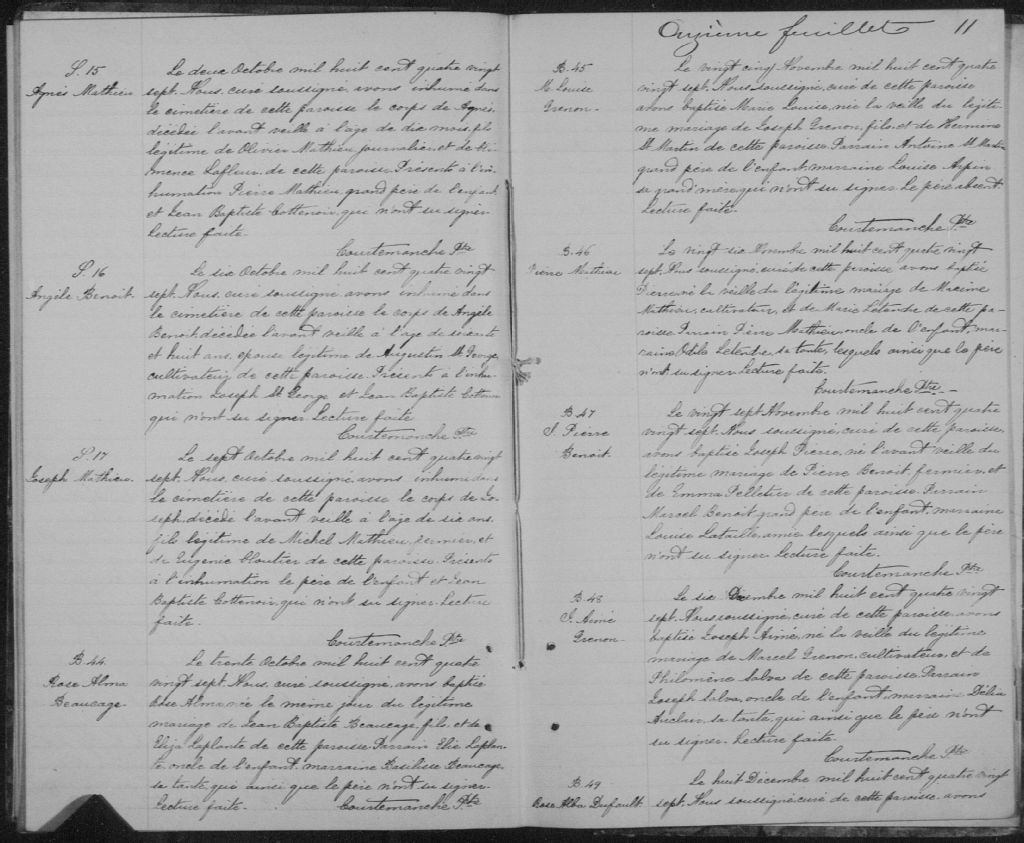 S. 15
Agnès Mathieu
Le deux Octobre mil huit cent quatre vingt
sept. Nous, curé soussigné, avons inhumé dans
le cimetière de cette paroisse le corps de Agnès,
décédée l'avant veille à l'âge de dix mois, fils
légitime de Olivier Mathieu, journalier, et de
mence Lafleur, de cette paroisse. Présents à l'in-
humation Pierre Mathieu, grand père de l'enfant
et Jean Baptiste Cottenoir, qui n'ont su signer.
Lecture faite.
Courtemanche Ptre
S. 16
Angèle Benoit.
Le six Octobre mil huit cent quatre vingt
sept. Nous, curé soussigné, avons inhumé dans
le cimetière de cette paroisse le corps de Angèle
Benoit, décédée l'avant veille à l'âge de soixante
et huit ans, epouse légitime de Augustin St George,
cultivateur, de cette paroisse. Présents à l'inhu-
mation Joseph St George et Jean Baptiste Cottenoir
qui n'ont su signer. Lecture faite.
Courtemanche Ptre
S. 17
Joseph Mathieu.
Le sept Octobre mil huit cent quatre vingt
sept. Nous, curé soussigné, avons inhumé dans
le cimetière de cette paroisse le corps de Jo-
seph, décédé l'avant veille à l'âge de six ans,
fils légitime de Michel Mathieu, fermier, et
de Eugénie Cloutier de cette paroisse. Présents
à l'inhumation le père de l'enfant et Jean
Baptiste Cottenoir, qui n'ont su signer. Lecture
faite.
Courtemanche Ptre
B. 44
Rose Alma
Beaucage.
Le trente Octobre mil huit cent quatre
vingt sept. Nous, curé soussigné, avons baptisé
Rose Alma, née le même jour du légitime
mariage de Jean Baptiste Beaucage, fils, et de
Eliza Laplante de cette paroisse. Parrain Elie Laplan-
te, oncle de l'enfant, marraine Basilisse Beaucage,
sa tante, qui ainsi que le père n'ont su signer.
Lecture faite. Courtemanche Ptre
Onzième feuillet 11
B. 45
M. Louise
Grenon.
Le vingt cinq Novembre mil huit cent quatre
vingt sept. Nous, soussigné, curé de cette paroisse
avons baptisé Marie Louise, née la veille du légiti-
me mariage de Joseph Grenon, fils, et de Hermine
St Martin de cette paroisse. Parrain Antoine St Martin
grand père de l'enfant, marraine Louise Arpin
sa grand mère, qui n'ont su signer. Le père absent.
Lecture faite.
Courtemanche Ptre
B. 46
Pierre Mathieu
Le vingt six Novembre mil huit cent quatre vingt
sept. Nous soussigné, curé de cette paroisse avons baptisé
Pierre, né la veille du légitime mariage de Maxime
Mathieu, cultivateur, et de Marie Letendre de cette pa-
roisse. Parrain Pierre Mathieu, oncle de l'enfant, mar-
raine Odile Letendre, sa tante, lesquels ainsi que le père
n'ont su signer. Lecture faite.
Courtemanche Ptre
B. 47
J. Pierre
Benoit.
Le vingt sept Novembre mil huit cent quatre
vingt sept. Nous soussigné, curé de cette paroisse,
avons baptisé Joseph Pierre, né l'avant veille du
légitime mariage de Pierre Benoit, fermier, et
de Emma Pelletier de cette paroisse. Parrain
Marcel Benoit, grand père de l'enfant, marraine
Louise Lataille, amie, lesquels ainsi que le père
n'ont su signer. Lecture faite.
Courtemanche Ptre
B. 48
J. Aimé
Grenon.
Le six Décembre mil huit cent quatre vingt
sept. Nous, soussigné, curé de cette paroisse, avons
baptisé Joseph Aimé, né la veille du légitime
mariage de Marcel Grenon, cultivateur, et de
Philomène Salva de cette paroisse. Parrain
Joseph Salva, oncle de l'enfant, marraine Délia
Auclair, sa tante, qui ainsi que le père n'ont
su signer. Lecture faite.
Courtemanche Ptre
B. 49
Rose Alba Dufault.
Le huit Décembre mil huit cent quatre vingt
sept. Nous soussigné, curé de cette paroisse, avons